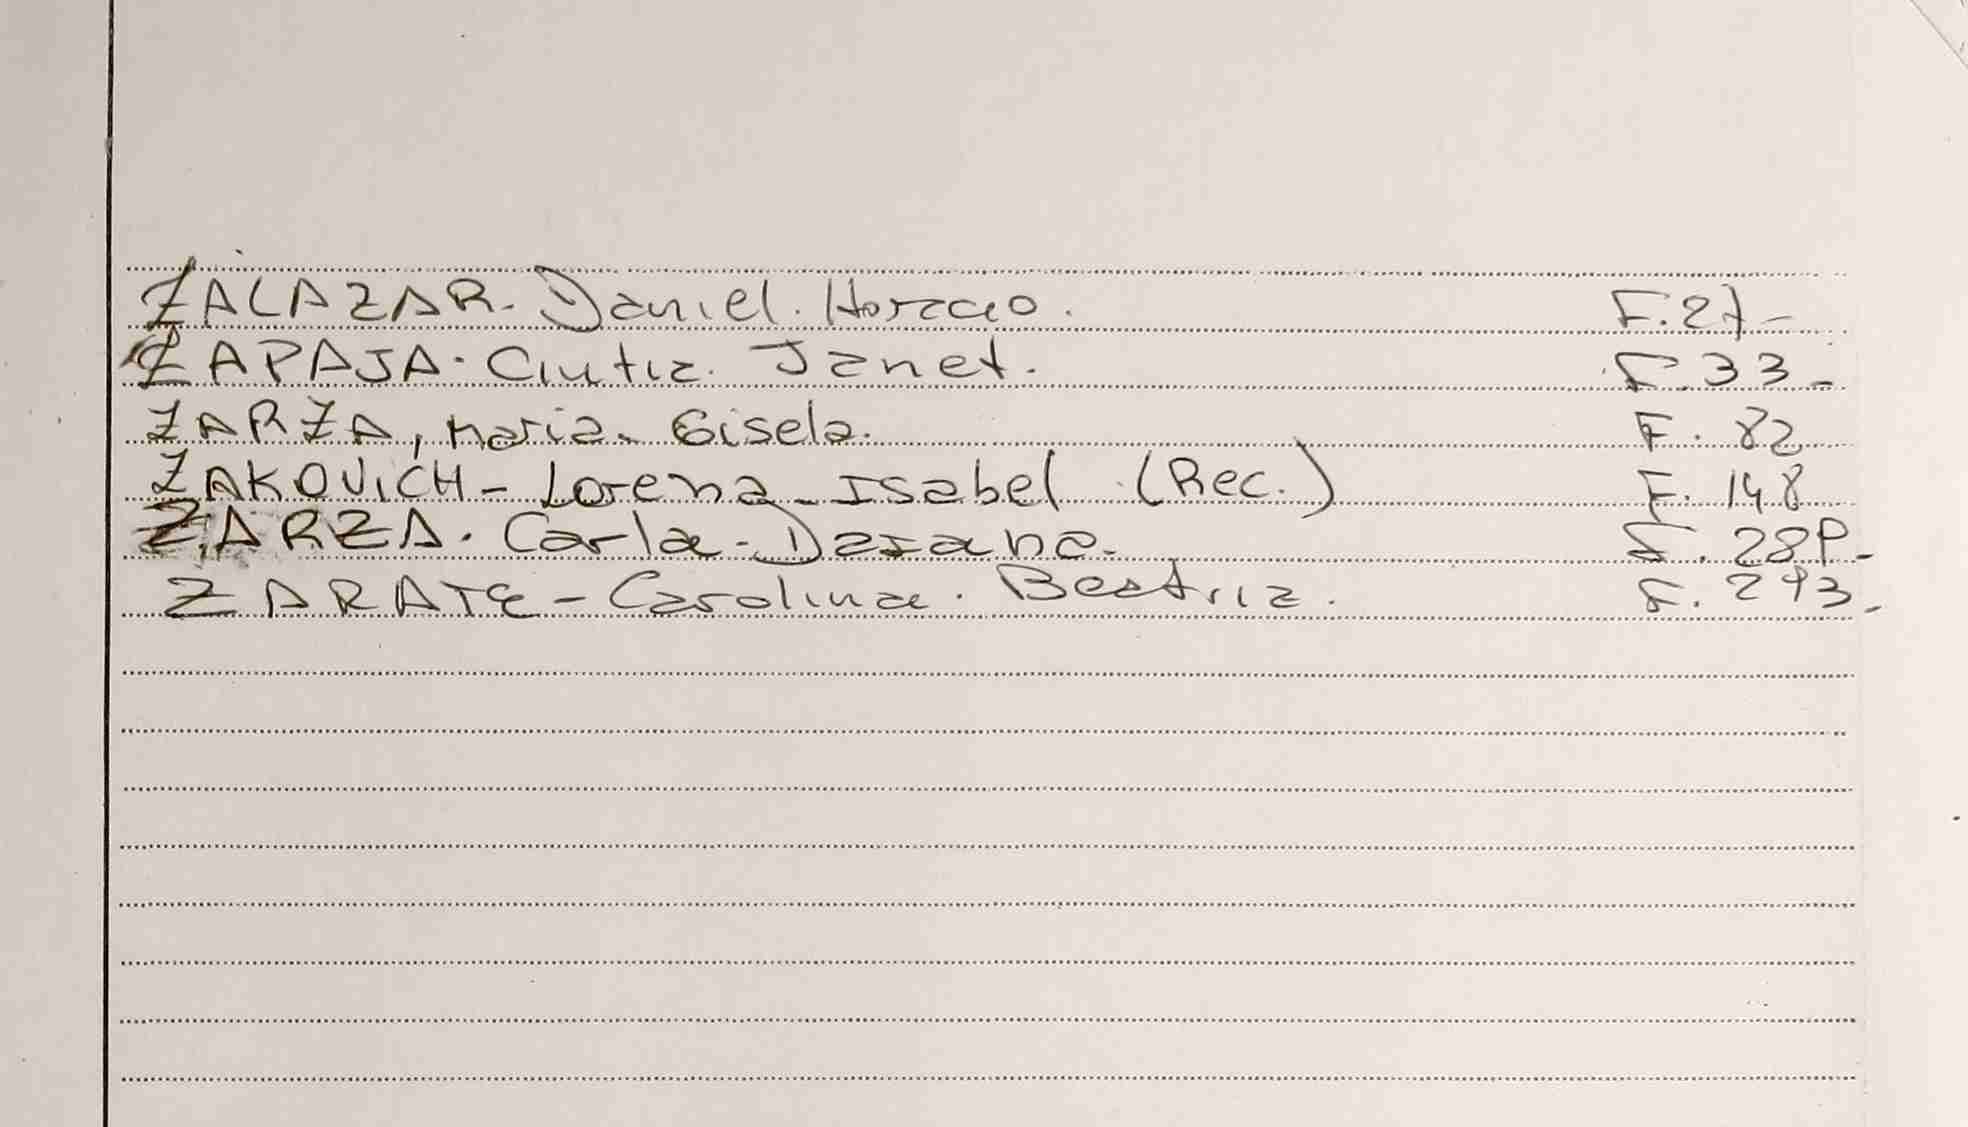 ZALAZAR. Daniel. Horacio. F.27-
ZAPAJA. Cintia. Janet. F.33-
ZARZA, Maria. Gisela. F. 82
ZAKOVICH - Lorena - Isabel (Rec.) F. 148
ZARZA. Carla - F. 289-
ZARATE - Carolina. Beatriz. F. 293-